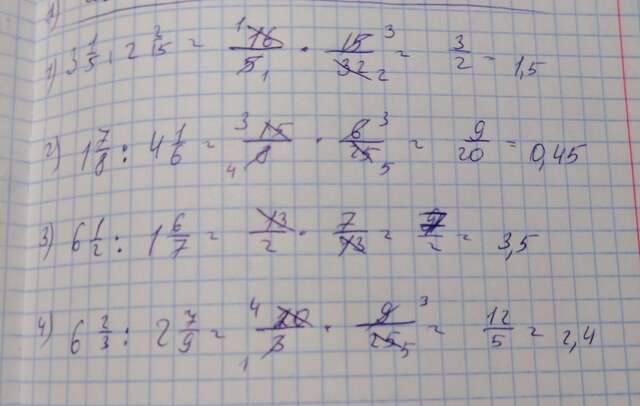 1)
1) 3 1/5 : 2 2/15 = 16/5 · 15/32 = 3/2 = 1,5
2) 1 7/8 : 4 1/6 = 15/8 · 6/25 = 9/20 = 0,45
3) 6 1/2 : 1 6/7 = 13/2 · 7/13 = 7/2 = 3,5
4) 6 2/3 : 2 7/9 = 20/3 · 9/25 = 12/5 = 2,4